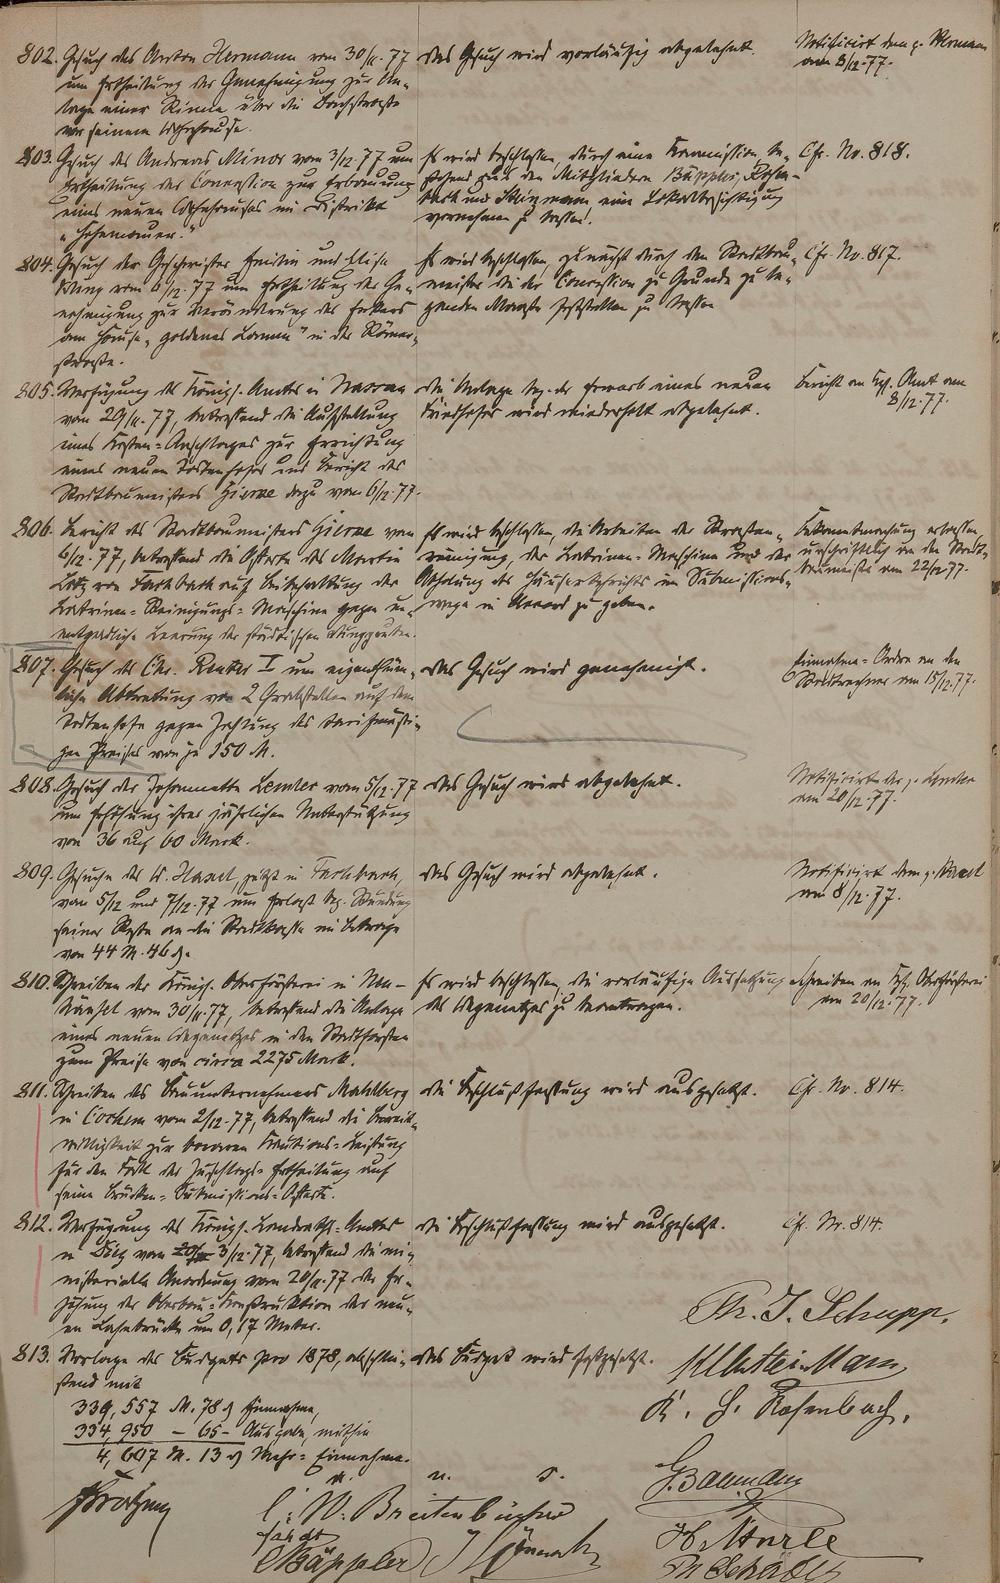 802. Gesuch des Anton Hermann vom 30/11. 77
um Ertheilung der Genehmigung zur An-
lage einer Rinne über die Bachstraße
vor seinem Wohnhause.
Das Gesuch wird vorläufig abgelehnt.
Notificirt dem p. Hermann
am 8/12. 77.
803. Gesuch des Andreas Minor vom 3/12. 77 um
Ertheilung der Concession zur Erbauung
eines neuen Wohnhauses im Distrikt
"Hohemauer."
Es wird beschlossen, durch eine Kommission be-
stehend aus den Mitgliedern Bäppler, Rosen-
bach und eine Lokalbesichtigung
vornehmen zu lassen.
Cfr. No. 818.
804. Gesuch der Geschwister Emilie und Elise
vom 6/12. 77 um Ertheilung der Ge-
nehmigung zur Veränderung des Erkers
am Hause "goldenes Lamm" in der Römer-
straße.
Es wird beschlossen, zunächst durch den Stadtbau-
meister die der Concession zu Grunde zu le-
genden Maaße feststellen zu lassen
Cfr. No. 817.
805. Verfügung des Königl. Amtes in Nassau
vom 29/11. 77, betreffend die Aufstellung
eines Kosten-Anschlages zur Errichtung
eines neuen Todtenhofes und Bericht des
Stadtbaumeisters dazu vom 6/12. 77.
Die Anlage bez. der Erwerb eines neuen
Friedhofes wird wiederholt abgelehnt.
Bericht an Kgl. Amt am
8/12. 77.
806. Bericht des Stadtbaumeisters vom
6/12. 77, betreffend die Offerte des Martin
Lotz von Fachbach auf Beibehaltung der
Latrinen-Reinigungs-Maschine gegen un-
entgeldliche Leerung der städtischen Dunggruben.
Es wird beschlossen, die Arbeiten der Straßen-
reinigung, der Latrinen-Maschine und der
Abholung des Hauserkehrichts im Submissions-
wege in Accord zu geben.
Bekanntmachung erlassen
urschriftlich an den Stadt-
baumeister am 22/12 77.
807. Gesuch des Chr. Reuter I um eigenthüm-
liche Abtretung von 2 Grabstellen auf dem
Todtenhofe gegen Zahlung des tarifmäßi-
gen Preises von je 150 M.
Das Gesuch wird genehmigt.
Einnahme-Ordre an den
Stadtrechner am 15/12. 77.
808. Gesuch der Johannette Lemler vom 5/12. 77
um Erhöhung ihrer jährlichen Unterstützung
von 36 auf 60 Mark.
Das Gesuch wird abgelehnt.
Notificirt der p. Lemler
am 20/12. 77.
809. Gesuche des W. Hasel, jetzt in Fachbach,
vom 5/12 und 7/12. 77 um Erlaß bez. Stundung
seiner Reste an die Stadtkasse im Betrage
von 44 M. 46 ₰.
Das Gesuch wird abgelehnt.
Notificirt dem p. Hasel
am 8/12. 77.
810. Schreiben der Königl. Oberförsterei in Neu-
häusel vom 30/11. 77, betreffend die Anlage
eines neuen Wegenetzes in den Stadtforsten
zum Preise von circa 2275 Mark.
Es wird beschlossen, die vorläufige Aussetzung
des Wegenetzes zu beantragen.
Schreiben an Kgl. Oberförsterei
am 20/12. 77.
811. Schreiben des Bauunternehmers Mahlberg
in Cochem vom 2/12. 77, betreffend die Bereit-
willigkeit zur baaren Kautions-Leistung
für den Fall der Zuschlags-Ertheilung auf
seine Brücken-Submissions-Offerte.
Die Beschlußfassung wird ausgesetzt.
Cfr. No. 814.
812. Verfügung des Königl. Landraths-Amtes
in Diez vom 3/12. 77, betreffend die mi-
nisterielle Anordnung vom 20/11. 77 der Er-
höhung der Oberbau-Konstruktion der neu-
en Lahnbrücke um 0,17 Meter.
Die Beschlußfassung wird ausgesetzt.
Cfr. Nr. 814.
813. Vorlage des Budgets pro 1878, abschlie-
ßend mit
339,557 M. 78 ₰ Einnahme,
334,950 - 65 - Ausgabe, mithin
4,607 M. 13 ₰ Mehr-Einnahme.
Das Budget wird festgesetzt.
v. u. s.
Ph. J. Schupp.
K. H. Rosenbach.
G. Baumann
C. W. Breitenbücher
C. Bäppler